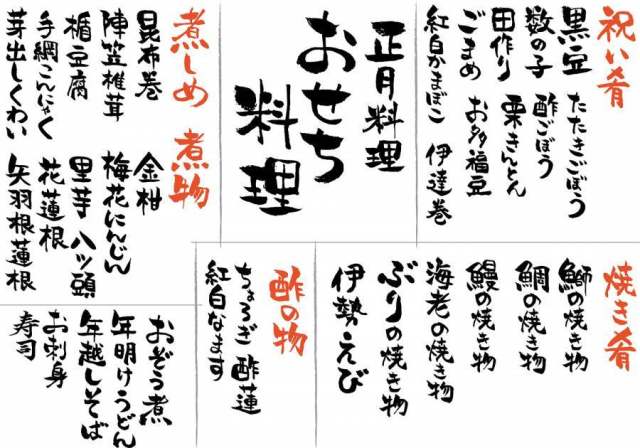 正月料理
おせち
料理
祝い肴
黒豆
数の子
田作り
ごまめ
紅白かまぼこ
たたきごぼう
酢ごぼう
栗きんとん
お多福豆
伊達巻
煮しめ
昆布巻
陣笠椎茸
楯豆腐
手綱こんにゃく
芽出しくわい
煮物
金柑
梅花にんじん
里芋 八ッ頭
花蓮根
矢羽根蓮根
焼き肴
鰤の焼き物
鯛の焼き物
鰻の焼き物
海老の焼き物
ぶりの焼き物
伊勢えび
酢の物
ちょろぎ 酢蓮
紅白なます
おぞう煮
年明けうどん
年越しそば
お刺身
寿司